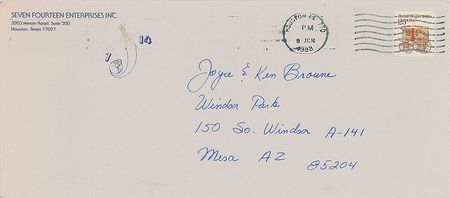 SEVEN FOURTEEN ENTERPRISES INC.
3203 Mercer Road, Suite 200
Houston, Texas 77027
7 14
HOUSTON TX 770
PM
8 JUN
1988
Joyce & Ken Browne
Windsor Park
150 So. Windsor A-141
Mesa AZ
85204